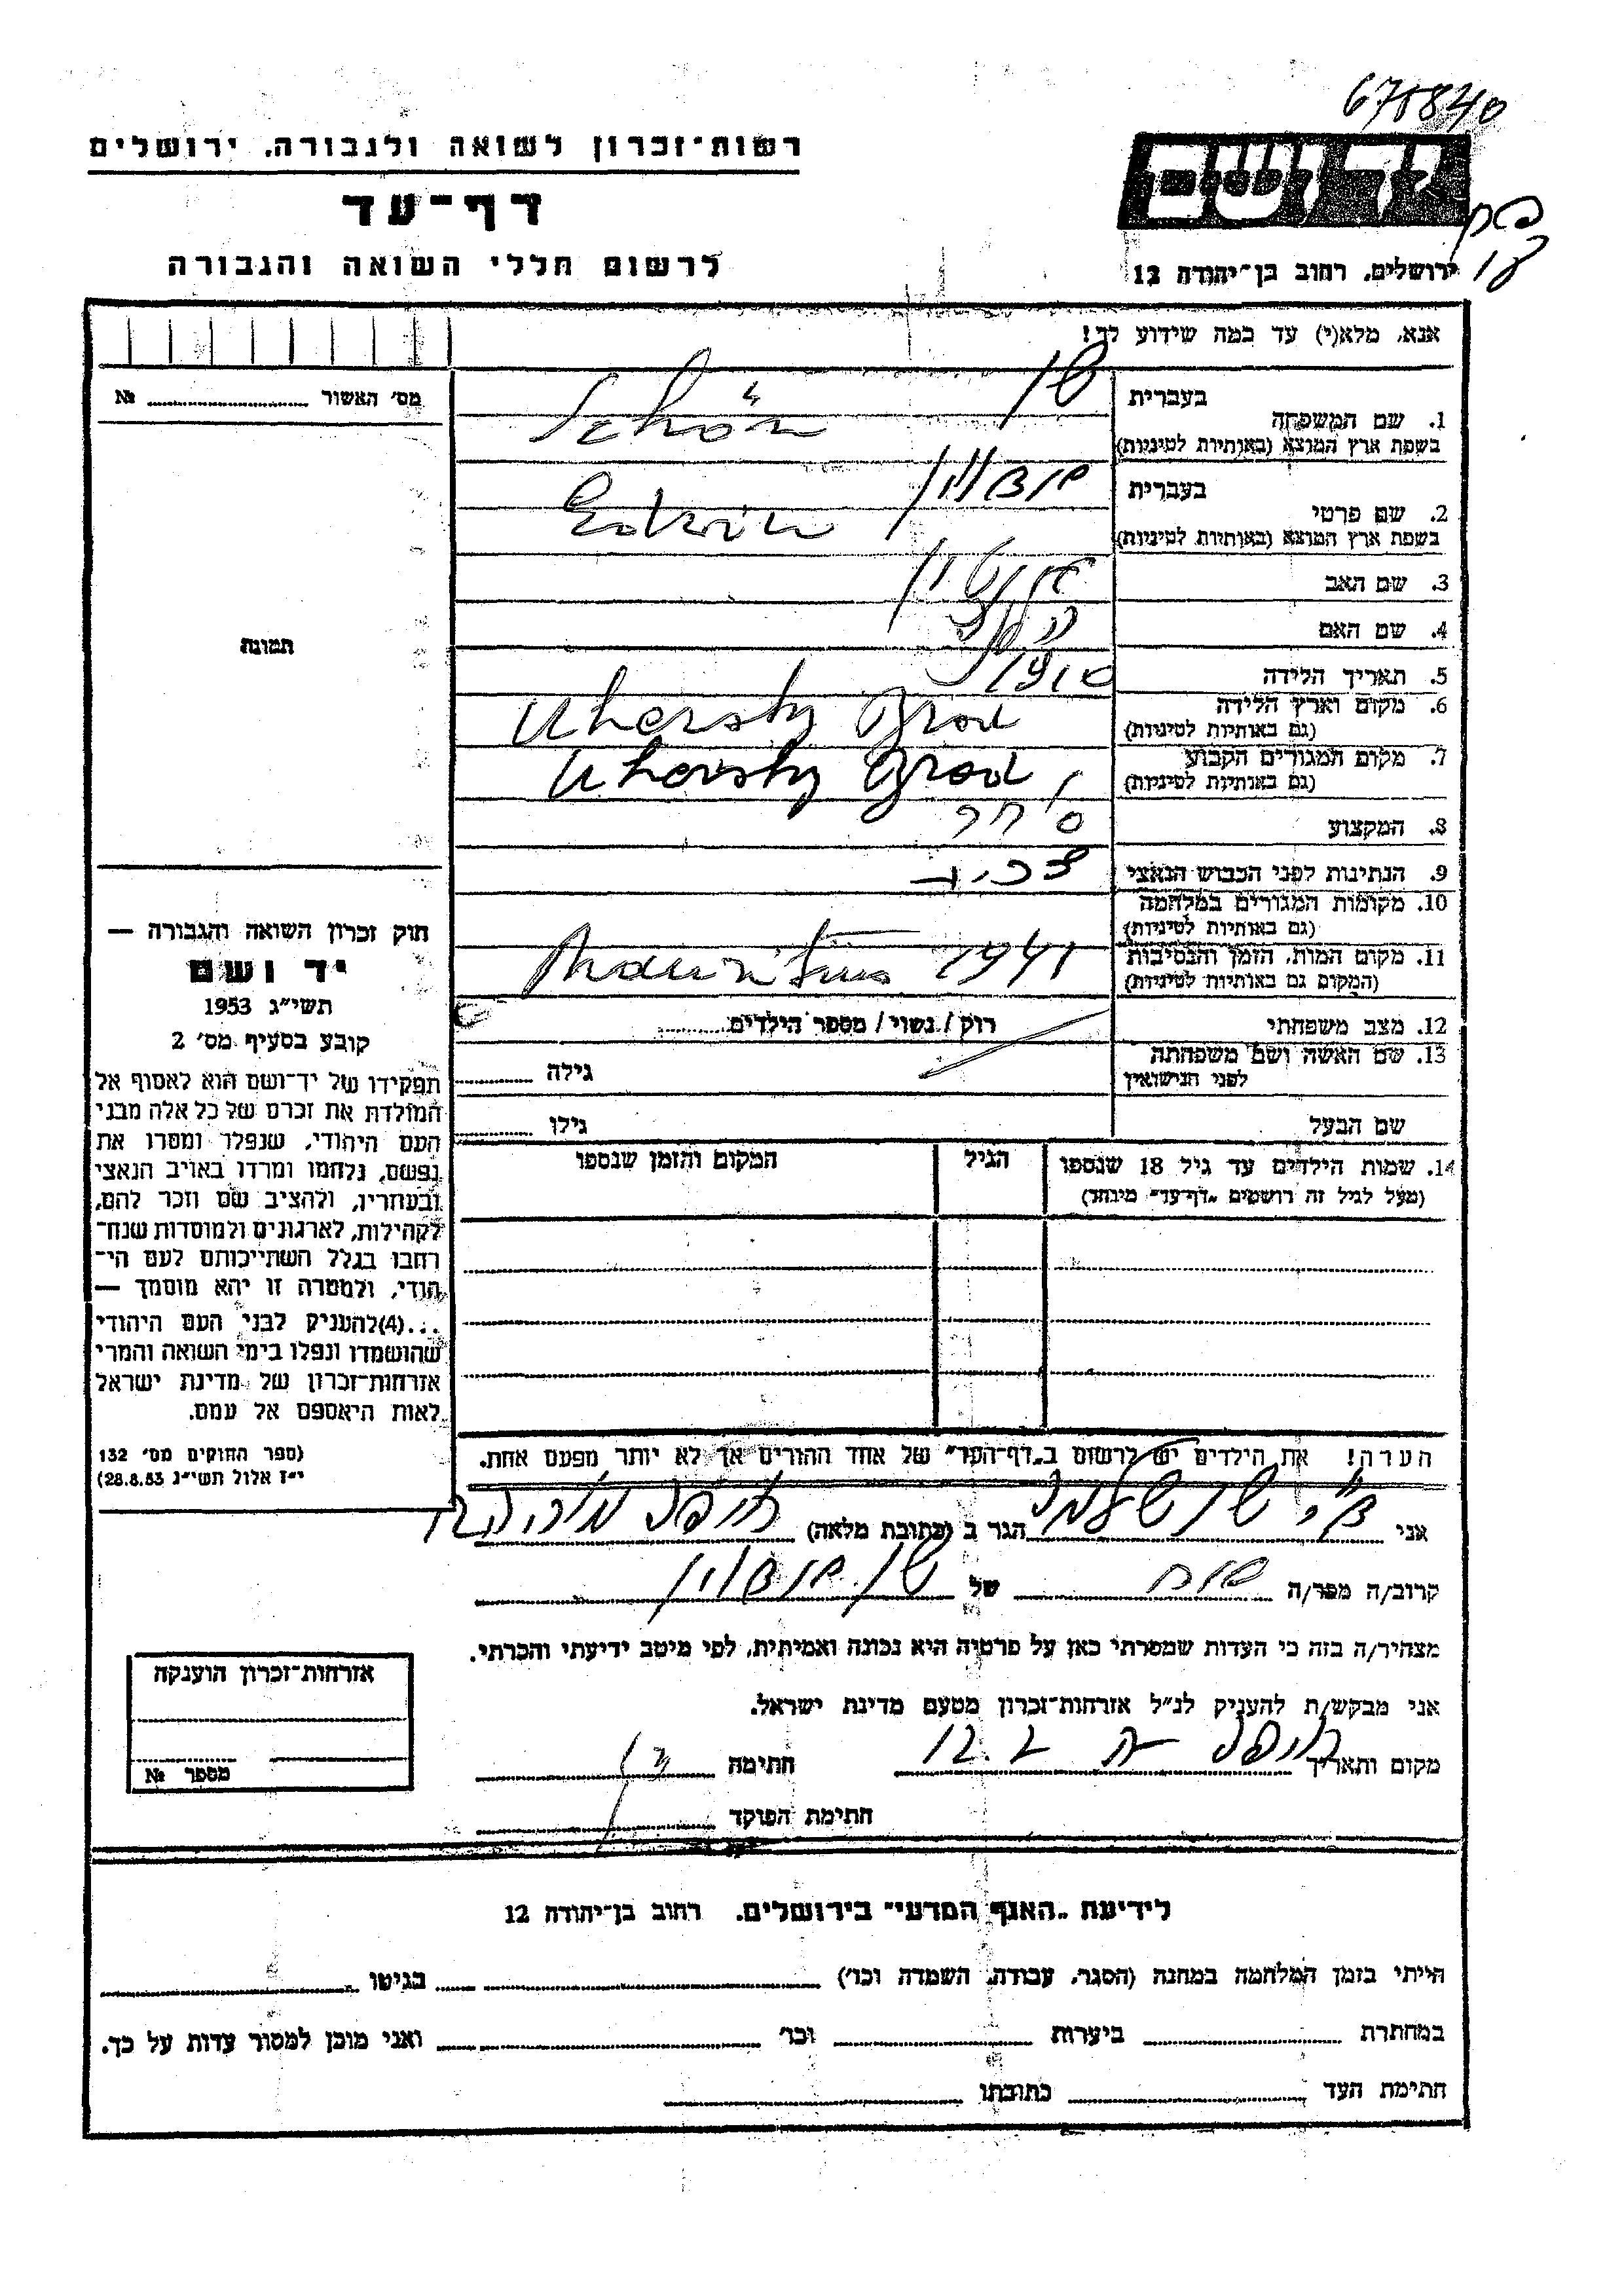 675840
רשות־זכרון לשואה ולגבורה, ירושלים
יד ושם
דף־עד
לרשום חללי השואה והגבורה
ירושלים, רחוב בן־יהודה 12
אנא, מלא(י) עד כמה שידוע לך!
מס' האשור № 
1. שם המשפחה
בעברית
שן
בשפת ארץ המוצא (באותיות לטיניות)
Schön
2. שם פרטי
בעברית
בשפת ארץ המוצא (באותיות לטיניות)
Edwin
3. שם האב
4. שם האם
תמונה
5. תאריך הלידה
1910
6. מקום וארץ הלידה
(גם באותיות לטיניות)
Uhersky Brod
7. מקום המגורים הקבוע
(גם באותיות לטיניות)
Uhersky Brod
8. המקצוע
סוחר
9. הנתינות לפני הכבוש הנאצי
צ'כית
10. מקומות המגורים במלחמה
(גם באותיות לטיניות)
11. מקום המות, הזמן והנסיבות
(המקום גם באותיות לטיניות)
Mauritius 1941
12. מצב משפחתי
רוק / נשוי / מספר הילדים
13. שם האשה ושם משפחתה
לפני הנישואין
גילה
שם הבעל
גילו
14. שמות הילדים עד גיל 18 שנספו
(מעל לגיל זה רושמים „דף־עד" מיוחד)
הגיל
המקום והזמן שנספו
חוק זכרון השואה והגבורה —
יד ושם
תשי"ג 1953
קובע בסעיף מס' 2
תפקידו של יד־ושם הוא לאסוף אל
המולדת את זכרם של כל אלה מבני
העם היהודי, שנפלו ומסרו את
נפשם, נלחמו ומרדו באויב הנאצי
ובעוזריו, ולהציב שם וזכר להם,
לקהילות, לארגונים ולמוסדות שנח־
רחבו בגלל השתייכותם לעם הי־
הודי, ולמטרה זו יהא מוסמך —
...(4)להעניק לבני העם היהודי
שהושמדו ונפלו בימי השואה והמרי
אזרחות־זכרון של מדינת ישראל
לאות היאספם אל עמם.
(ספר החוקים מס' 132
י"ז אלול תשי"ג 28.8.53)
הערה! את הילדים יש לרשום ב„דף־העד" של אחד ההורים אך לא יותר מפעם אחת.
אני
הגר ב (כתובת מלאה)
קרוב/ה מפר/ה אח של שן
מצהיר/ה בזה כי העדות שמסרתי כאן על פרטיה היא נכונה ואמיתית, לפי מיטב ידיעתי והכרתי.
אני מבקש/ת להעניק לנ"ל אזרחות־זכרון מטעם מדינת ישראל.
מקום ותאריך
חתימה
חתימת הפוקד
אזרחות־זכרון הוענקה
מספר №
לידיעת „האגף המדעי" בירושלים, רחוב בן־יהודה 12
הייתי בזמן המלחמה במחנה (הסגר, עבודה, השמדה וכו') בגיטו
במחתרת ביערות וכו' ואני מוכן למסור עדות על כך.
חתימת העד כתובתו